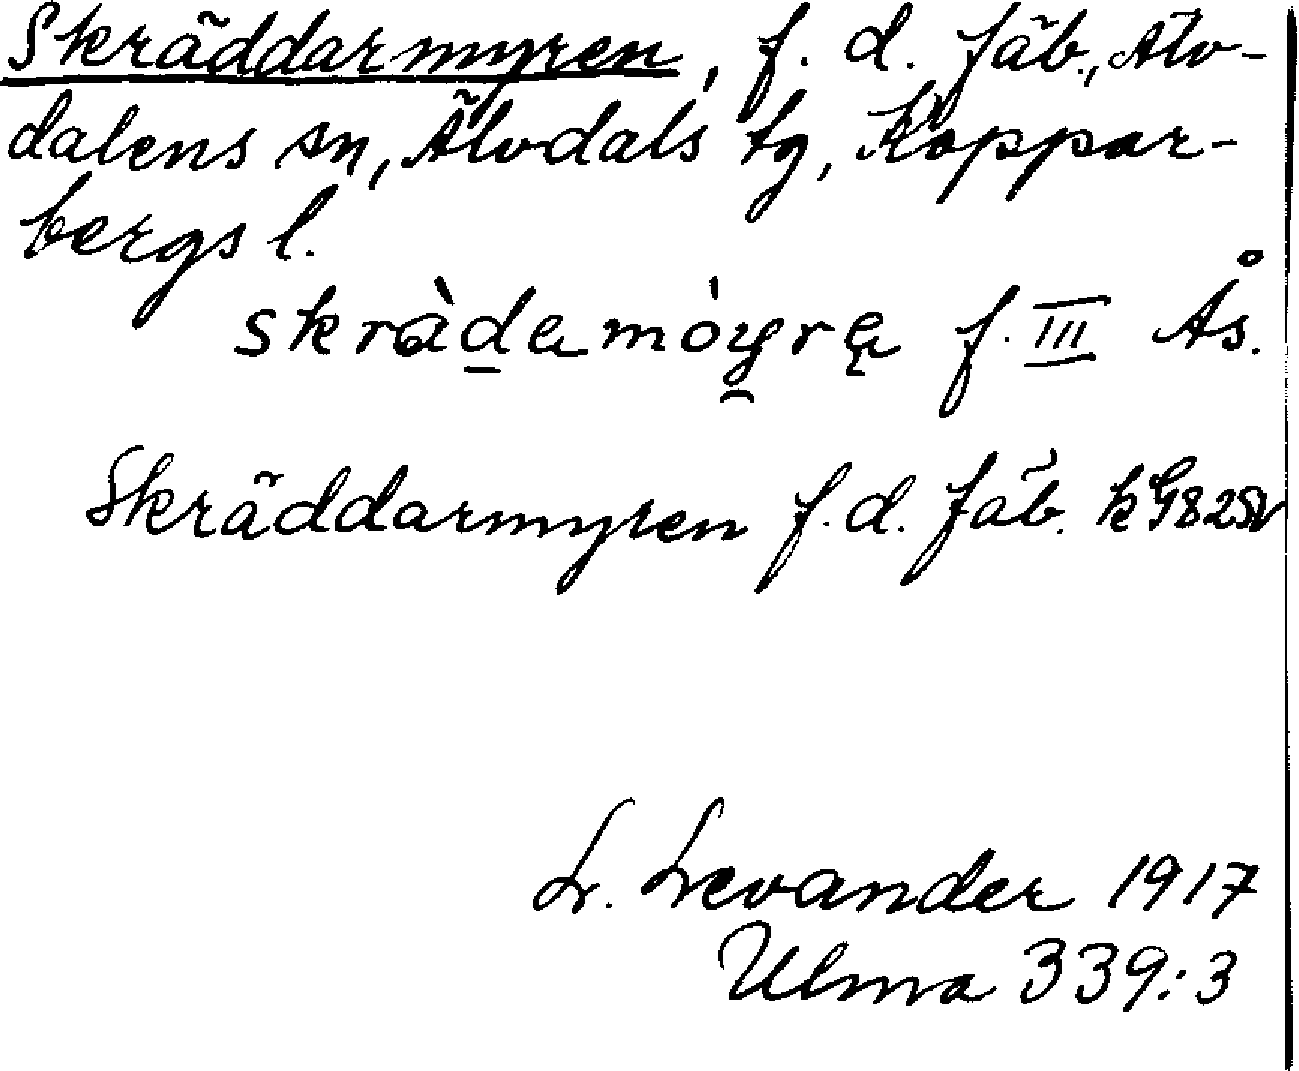 Skräddarmyren, f. d. fäb., Älv-
dalens sn, Älvdals tg, Koppar-
bergs l.
f. III Ås.
Skräddarmyren f. d. fäb. k G82SV
L. Levander 1917
Ulma 339:3